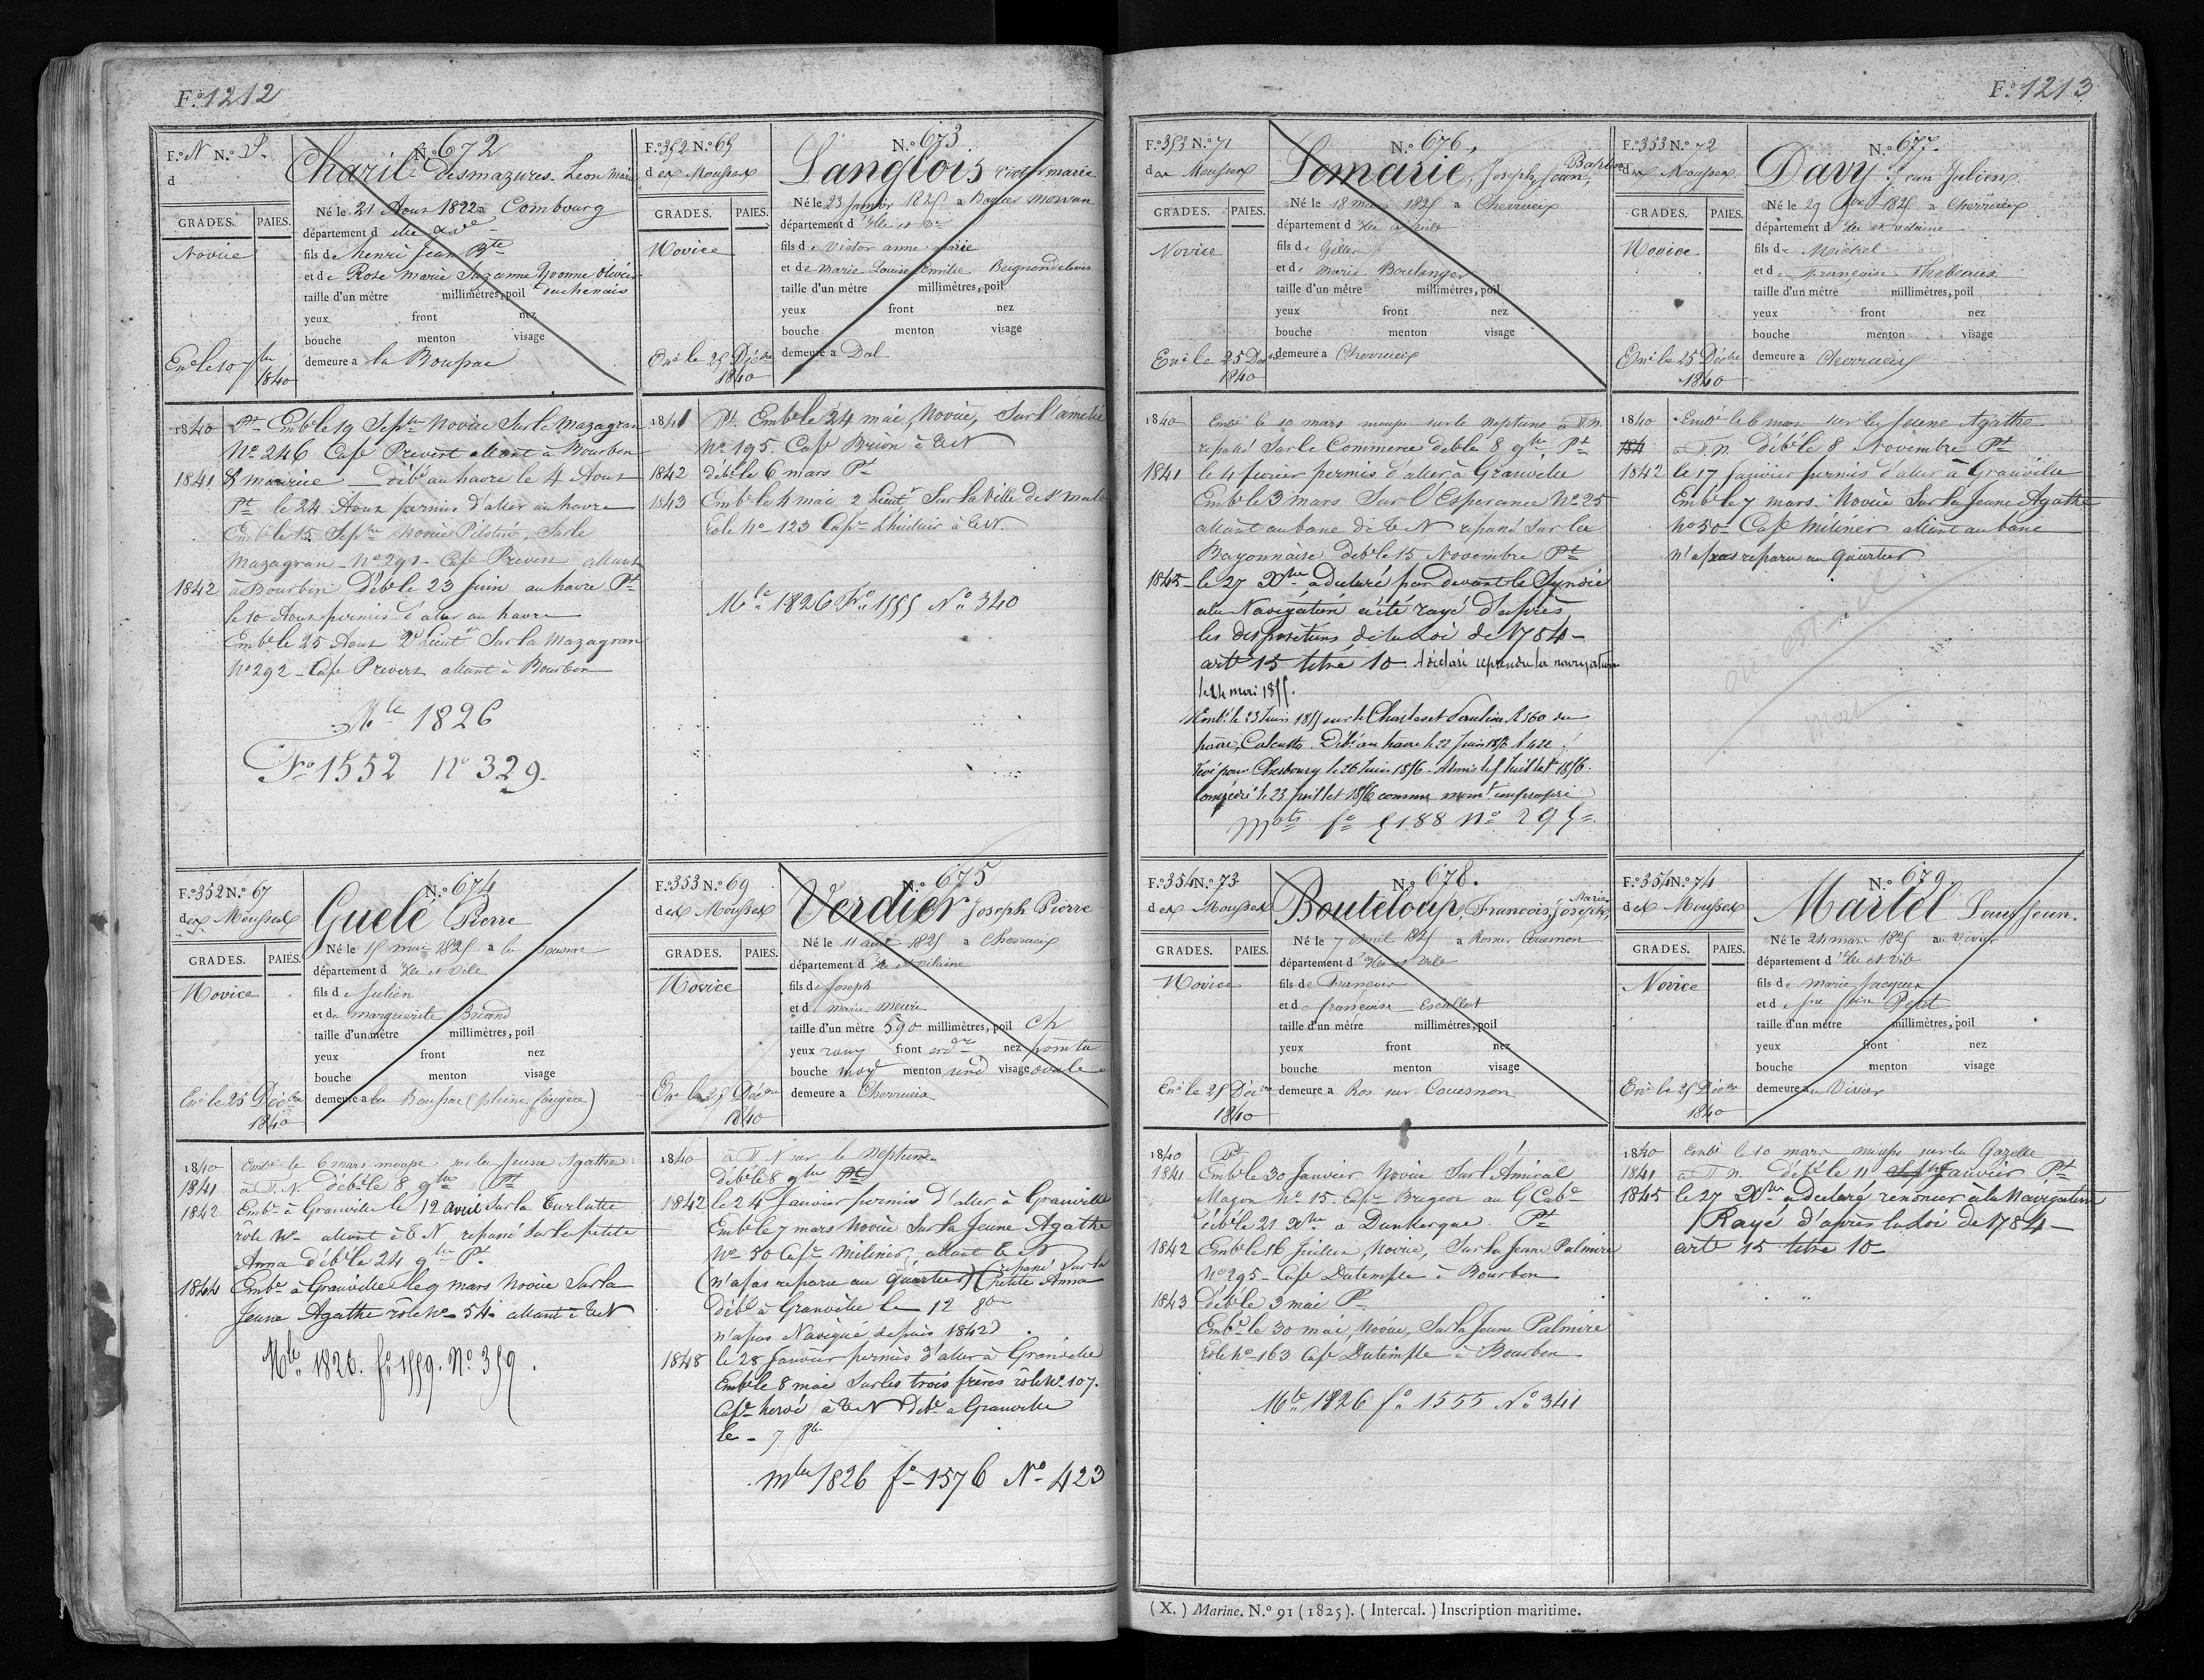 F.º 1212
F.º N N.º S.
d
GRADES. PAIES.
Novice
Ené le 10 7bre
1840
N.º 672
Charil Desmazures Léon Marie
Né le 21 Aout 1822 a Combourg
département d'Ille &
fils de henri Jean Bte
et de Rose Marie Suzanne Yvonne Olivier
duchenais
taille d'un mètre millimètres, poil
yeux front nez
bouche menton visage
demeure a la Boussac
1840 Pt Embé le 19 Septbre Novice Sur le Mazagran
Nº 246 Cape Prevert allant à Bourbon
1841 débé au havre le 4 Aout
Pt le 24 Aout permis d'aller au havre
Embé le 15 Septbre Novice Pilotin, Sur le
Mazagran Nº 291 Cape Prevert allant
1842 à Bourbon Débé le 23 juin au havre Pt
le 10 Aout permis d'aller au havre
Embé le 25 Aout 2d Lieut Sur la Mazagran
Nº 292 Cape Prevert allant à Bourbon
Mle 1826
Fº 1552 nº 329.
F.º 352 N.º 65
des Mousses
GRADES. PAIES.
Novice
Enré le 25 Décbre
1840
N.º 673
Langlois marie
Né le 23 janvier 1825 a Baguer Morvan
département d'Ille et
fils de Victor anne marie
et de Marie Louise Emilie
taille d'un mètre millimètres, poil
yeux front nez
bouche menton visage
demeure a Dol
1841 Pt Embé le 24 mai, Novice, Sur l'amelie
Nº 195. Cape Brion à T.N
1842 débé le 6 mars Pt
1843 Embé le 4 mai 2 Lieut Sur la Ville de St malo
Role Nº 123 Cape Lhuilier à T.N.
Mle 1826 Fº 1555 Nº 340
F.º 352 N.º 67
des Mousses
GRADES. PAIES.
Novice
Enré le 25 Décbre
1840
N.º 674
Guelé Pierre
Né le 15 mai 1825 a la Boussac
département d'Ille et Vile
fils de Julien
et de marguerite Briand
taille d'un mètre millimètres, poil
yeux front nez
bouche menton visage
demeure a la Boussac (pleine fougère)
1840 Embé le 6 mars mousse sur la Jeune Agathe
1841 à T.N. débé le 8 9bre Pt
1842 Embé à Granville le 12 avril Sur la Turlutte
rôle Nº allant à T.N repassé Sur la petite
Anna débé le 24 9bre Pt.
1844 Embé à Granville le 9 mars Novice Sur la
Jeune Agathe rôle Nº 54 allant à T.N
Mle 1826. fº 1559. Nº 359.
F.º 353 N.º 69
des Mousses
GRADES. PAIES.
Novice
Enré le 25 Décbre
1840
N.º 675
Verdier Joseph Pierre
Né le 11 août 1825 a Cherrueix
département d'Ille et Vilaine
fils de Joseph
et de marie
taille d'un mètre 590 millimètres, poil ch
yeux roux front ordre nez pointu
bouche moye menton rond visage ovale
demeure a Cherrueix
1840 à T.N sur le Neptune
débé le 8 9bre Pt
1842 le 24 Janvier permis d'aller à Granville
Embé le 7 mars Novice Sur la Jeune Agathe
Nº 50 Cape Milinér, allant T.N
(n'a pas reparu au quartier) (repassé Sur la
petite Anna
débé à Granville le 12 8bre
n'a pas Navigué depuis 1842)
1848 le 28 Janvier permis d'aller à Granville
Embé le 8 mai Sur les trois frères rôle Nº 107.
Cape hervé à T.N débé a Granville
le 7
mle 1826 fº 1576 Nº 423
F.º 1213
F.º 353 N.º 71
des Mousses
GRADES. PAIES.
Novice
Enré le 25 Décbre
1840
N.º 676.
Lemarié, Joseph, Jean, Baptiste
Né le 18 mars 1825 a Cherrueix
département d'Ille et Vile
fils de Gilles
et de Marie Boulanger
taille d'un mètre millimètres, poil
yeux front nez
bouche menton visage
demeure a Cherrueix
1840 Embé le 10 mars mousse sur le Neptune à T.N.
repassé Sur le Commerce débé le 8 9bre Pt
1841 le 4 fevrier permis d'aller à Granville
Embé le 3 mars Sur l'Esperance Nº 25
allant au banc de T.N repassé Sur la
Bayonnaise débé le 15 Novembre Pt
1845 le 27 Xbre a declaré par devant le Syndic
à la Navigation a été rayé d'après
les dispositions de la Loi de 1784
arte 15 titre 10. A déclaré reprendre la navigation
le 24 mai 1855.
Embé le 23 Juin 1855 sur le Charles et Pauline R 360 du
havre, Calcutta. Débé au havre le 22 Juin 1856 R 422
Levé pour Cherbourg le 26 Juin 1856. Admis le 5 Juillet 1856.
Congédié le 23 juillet 1856 comme momt impropre
Mots fº 5188 nº 295
F.º 353 N.º 72
des Mousses
GRADES. PAIES.
Novice
Enré le 25 Décbre
1840
N.º 677.
Davy Jean Julien
Né le 29 1825 a Cherrueix
département d'Ille et vilaine
fils de Michel
et de Françoise Thebeaux
taille d'un mètre millimètres, poil
yeux front nez
bouche menton visage
demeure a Cherrueix
1840 Embé le 6 mars sur la Jeune Agathe
184 à T.N. débé le 8 Novembre Pt
1842 le 17 Janvier permis d'aller à Granville
Embé le 7 mars Novice Sur la Jeune Agathe
nº 50 Cape Milinér allant au banc
n'a pas reparu au Quartier
où est-il
mort
F.º 354 N.º 73
des Mousses
GRADES. PAIES.
Novice
Enré le 25 Décbre
1840
N.º 678.
Bouteloup, François, Joseph, Marie
Né le 7 avril 1825 a Rossur Couesnon
département d'Ille et Vile
fils de François
et de françoise
taille d'un mètre millimètres, poil
yeux front nez
bouche menton visage
demeure a Ros sur Couesnon
1840 Pt
1841 Embé le 30 Janvier Novice Sur l'Amiral
Magon Nº 15. Cape Brigeon au G Cabe
débé le 21 Xbre a Dunkerque. Pt
1842 Embé le 16 Juillet, Novice, Sur la Jeune Palmire
Nº 295 Cape Dutemple à Bourbon
1843 débé le 3 mai Pt
Embé le 30 mai, Novice, Sur la Jeune Palmire
role Nº 163 Cape Dutemple à Bourbon
Mle 1826 fº 1555 Nº 341
F.º 354 N.º 74
des Mousses
GRADES. PAIES.
Novice
Enré le 25 Décbre
1840
N.º 679
Martel Louis Jean.
Né le 24 mars 1825 au Vivier
département d'Ille et Vile
fils de Marie Jacques
et de Petit
taille d'un mètre millimètres, poil
yeux front nez
bouche menton visage
demeure au Vivier
1840 Embé le 10 mars mousse sur la Gazelle
1841 à T.N. débé le 11 Janvier Pt
1845 le 27 Xbre a declaré renoncer à la Navigation
Rayé d'après la Loi de 1784
arte 15 titre 10
(X.) Marine. N.º 91 (1825). (Intercal.) Inscription maritime.